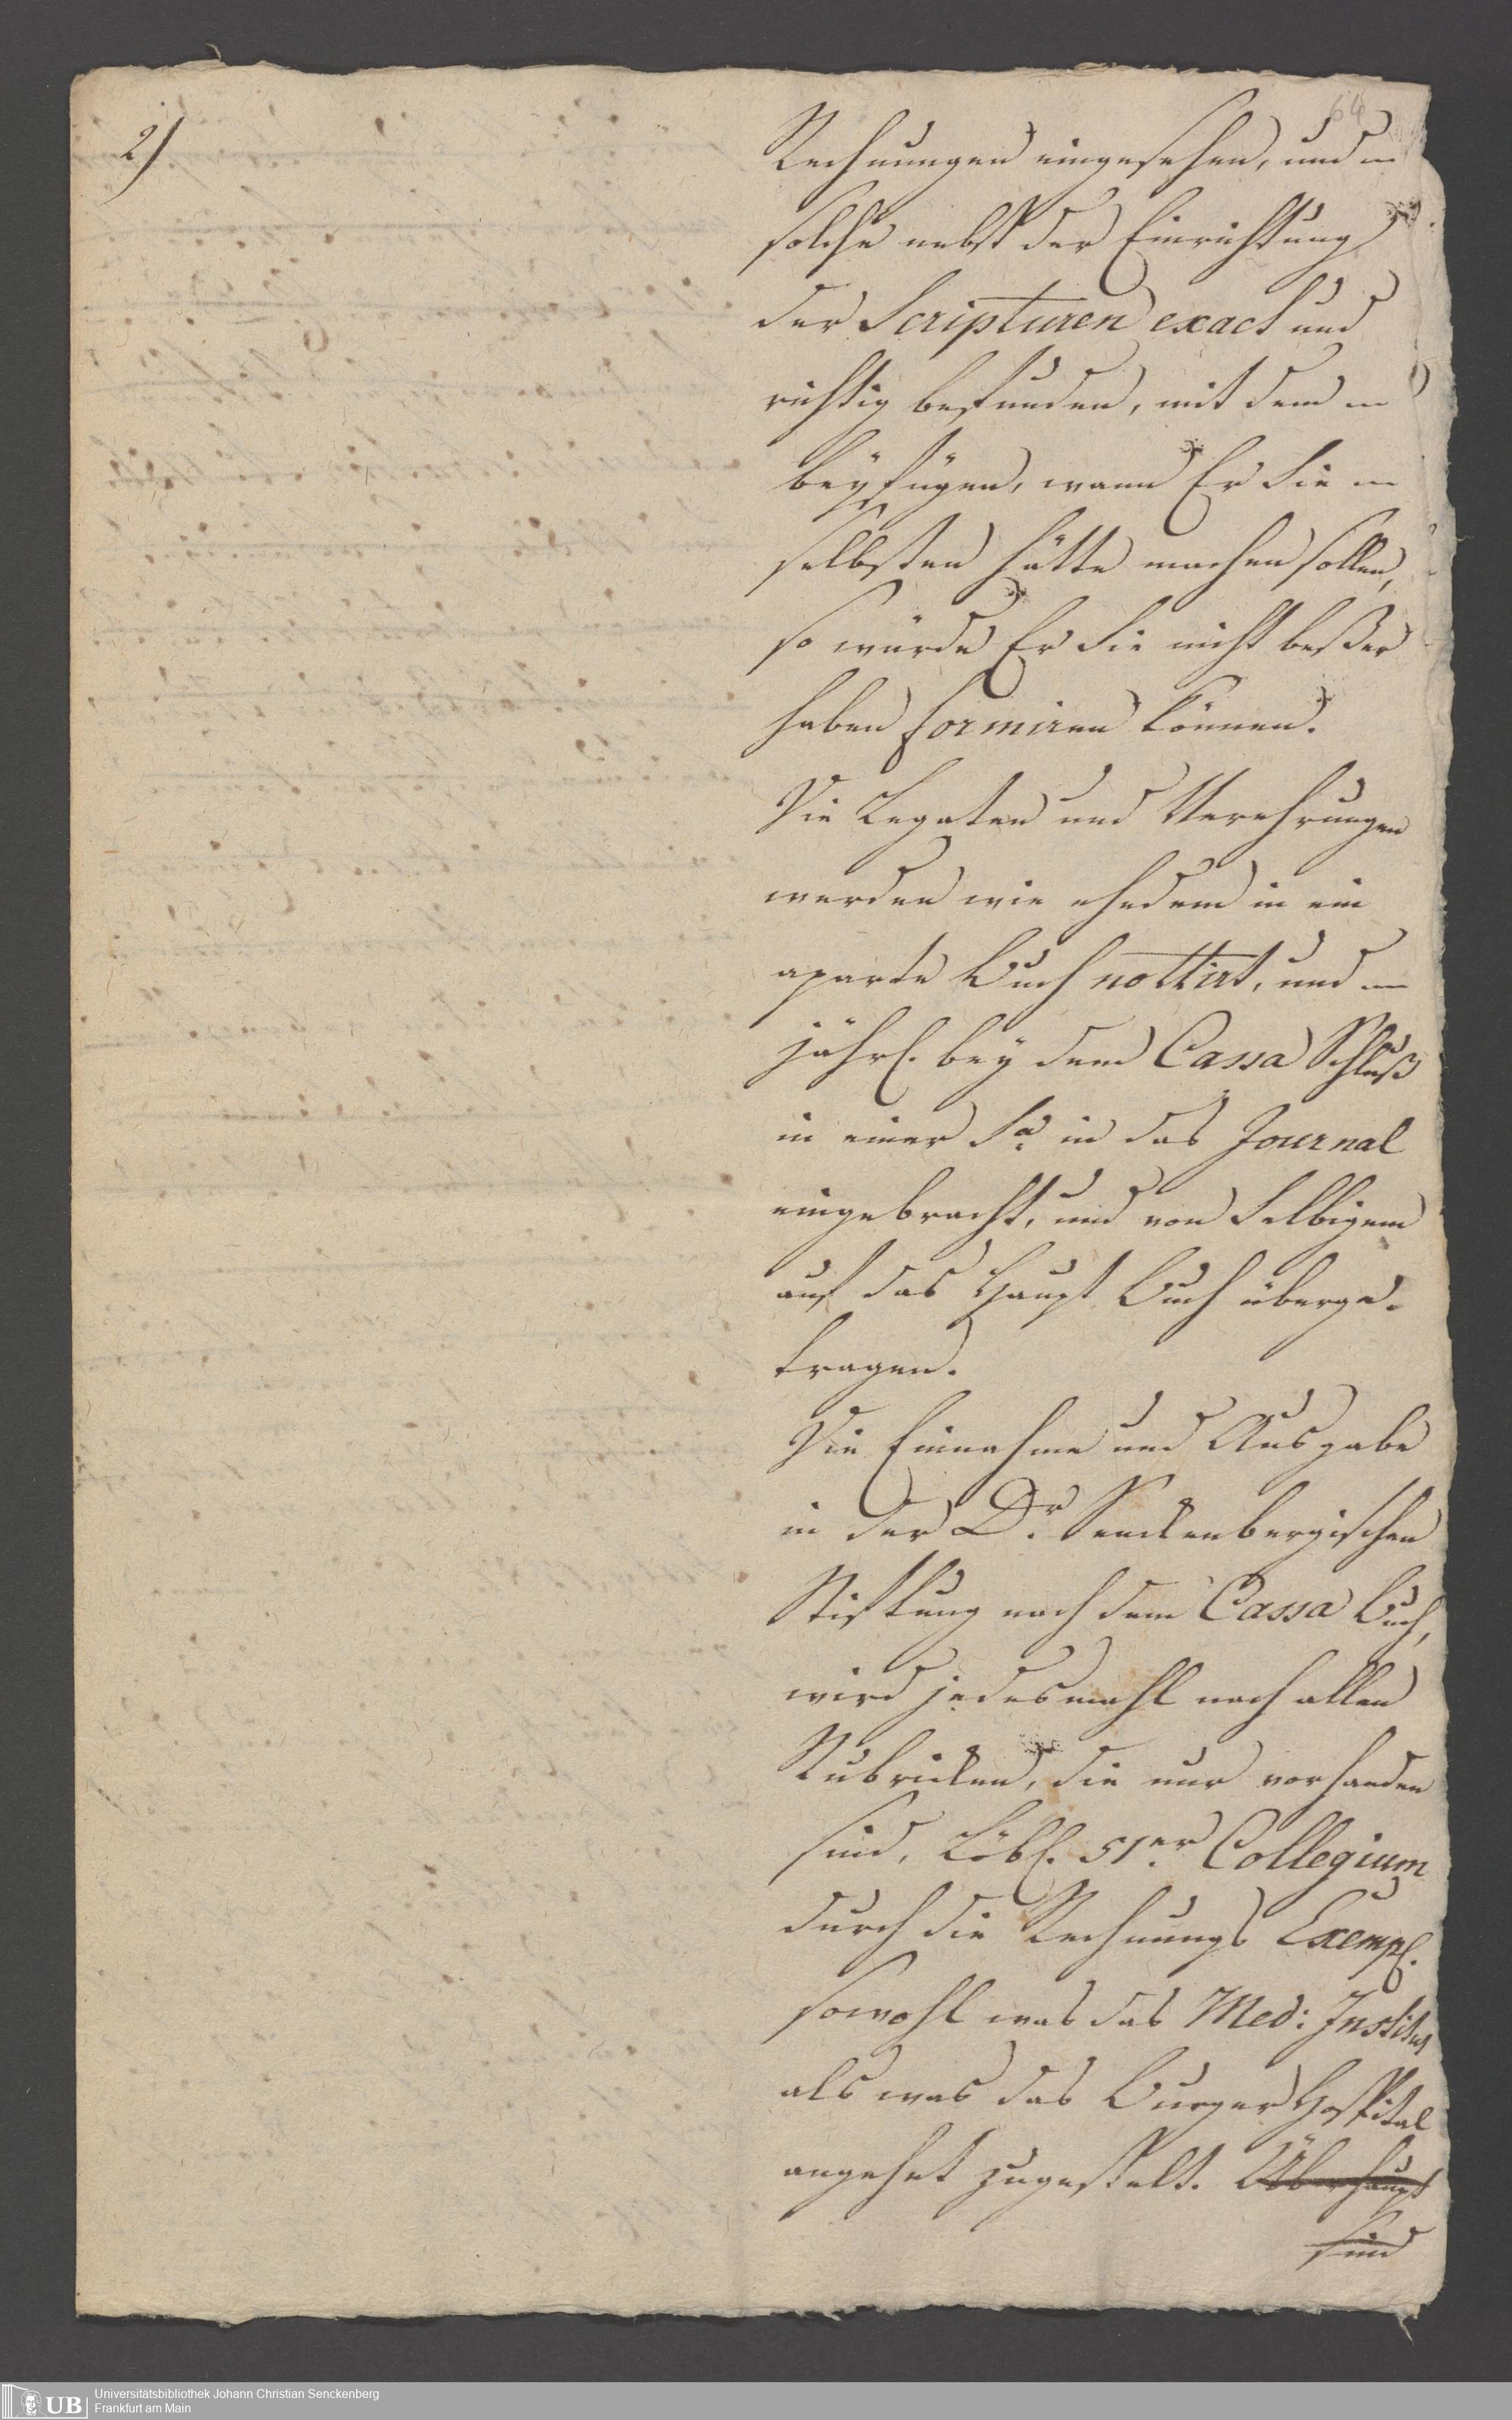 64
2)
Rechnungen eingesehen, und
solche nebst der Einrichtung
der Scripturen exact und
richtig befunden, mit dem
beyfügen, wann Er Sie
selbsten hätte machen sollen,
so würde Er Sie nicht beßer
haben formiren können.
Die Legaten und Verehrungen
werden wie ehedem in ein
aparte Buch nottirt, und
jährl. bey dem Cassa Schluß
in einer Sa. in das Journal
eingebracht, und von Selbigem
auf das Haupt Buch überge-
tragen.
Die Einnahme und Ausgabe
in der Dr. Senckenbergischen
Stiftung nach dem Cassa Buch,
wird jedesmahl nach allen
Rubricken, die nur vorhanden
sind, Löbl. 51er. Collegium
durch die Rechnungs Exempl.
sowohl was das Med: Institut
als was das Burger Hospital
angehet zugestelt. Überhaupt
sind
UB
Universitätsbibliothek Johann Christian Senckenberg
Frankfurt am Main